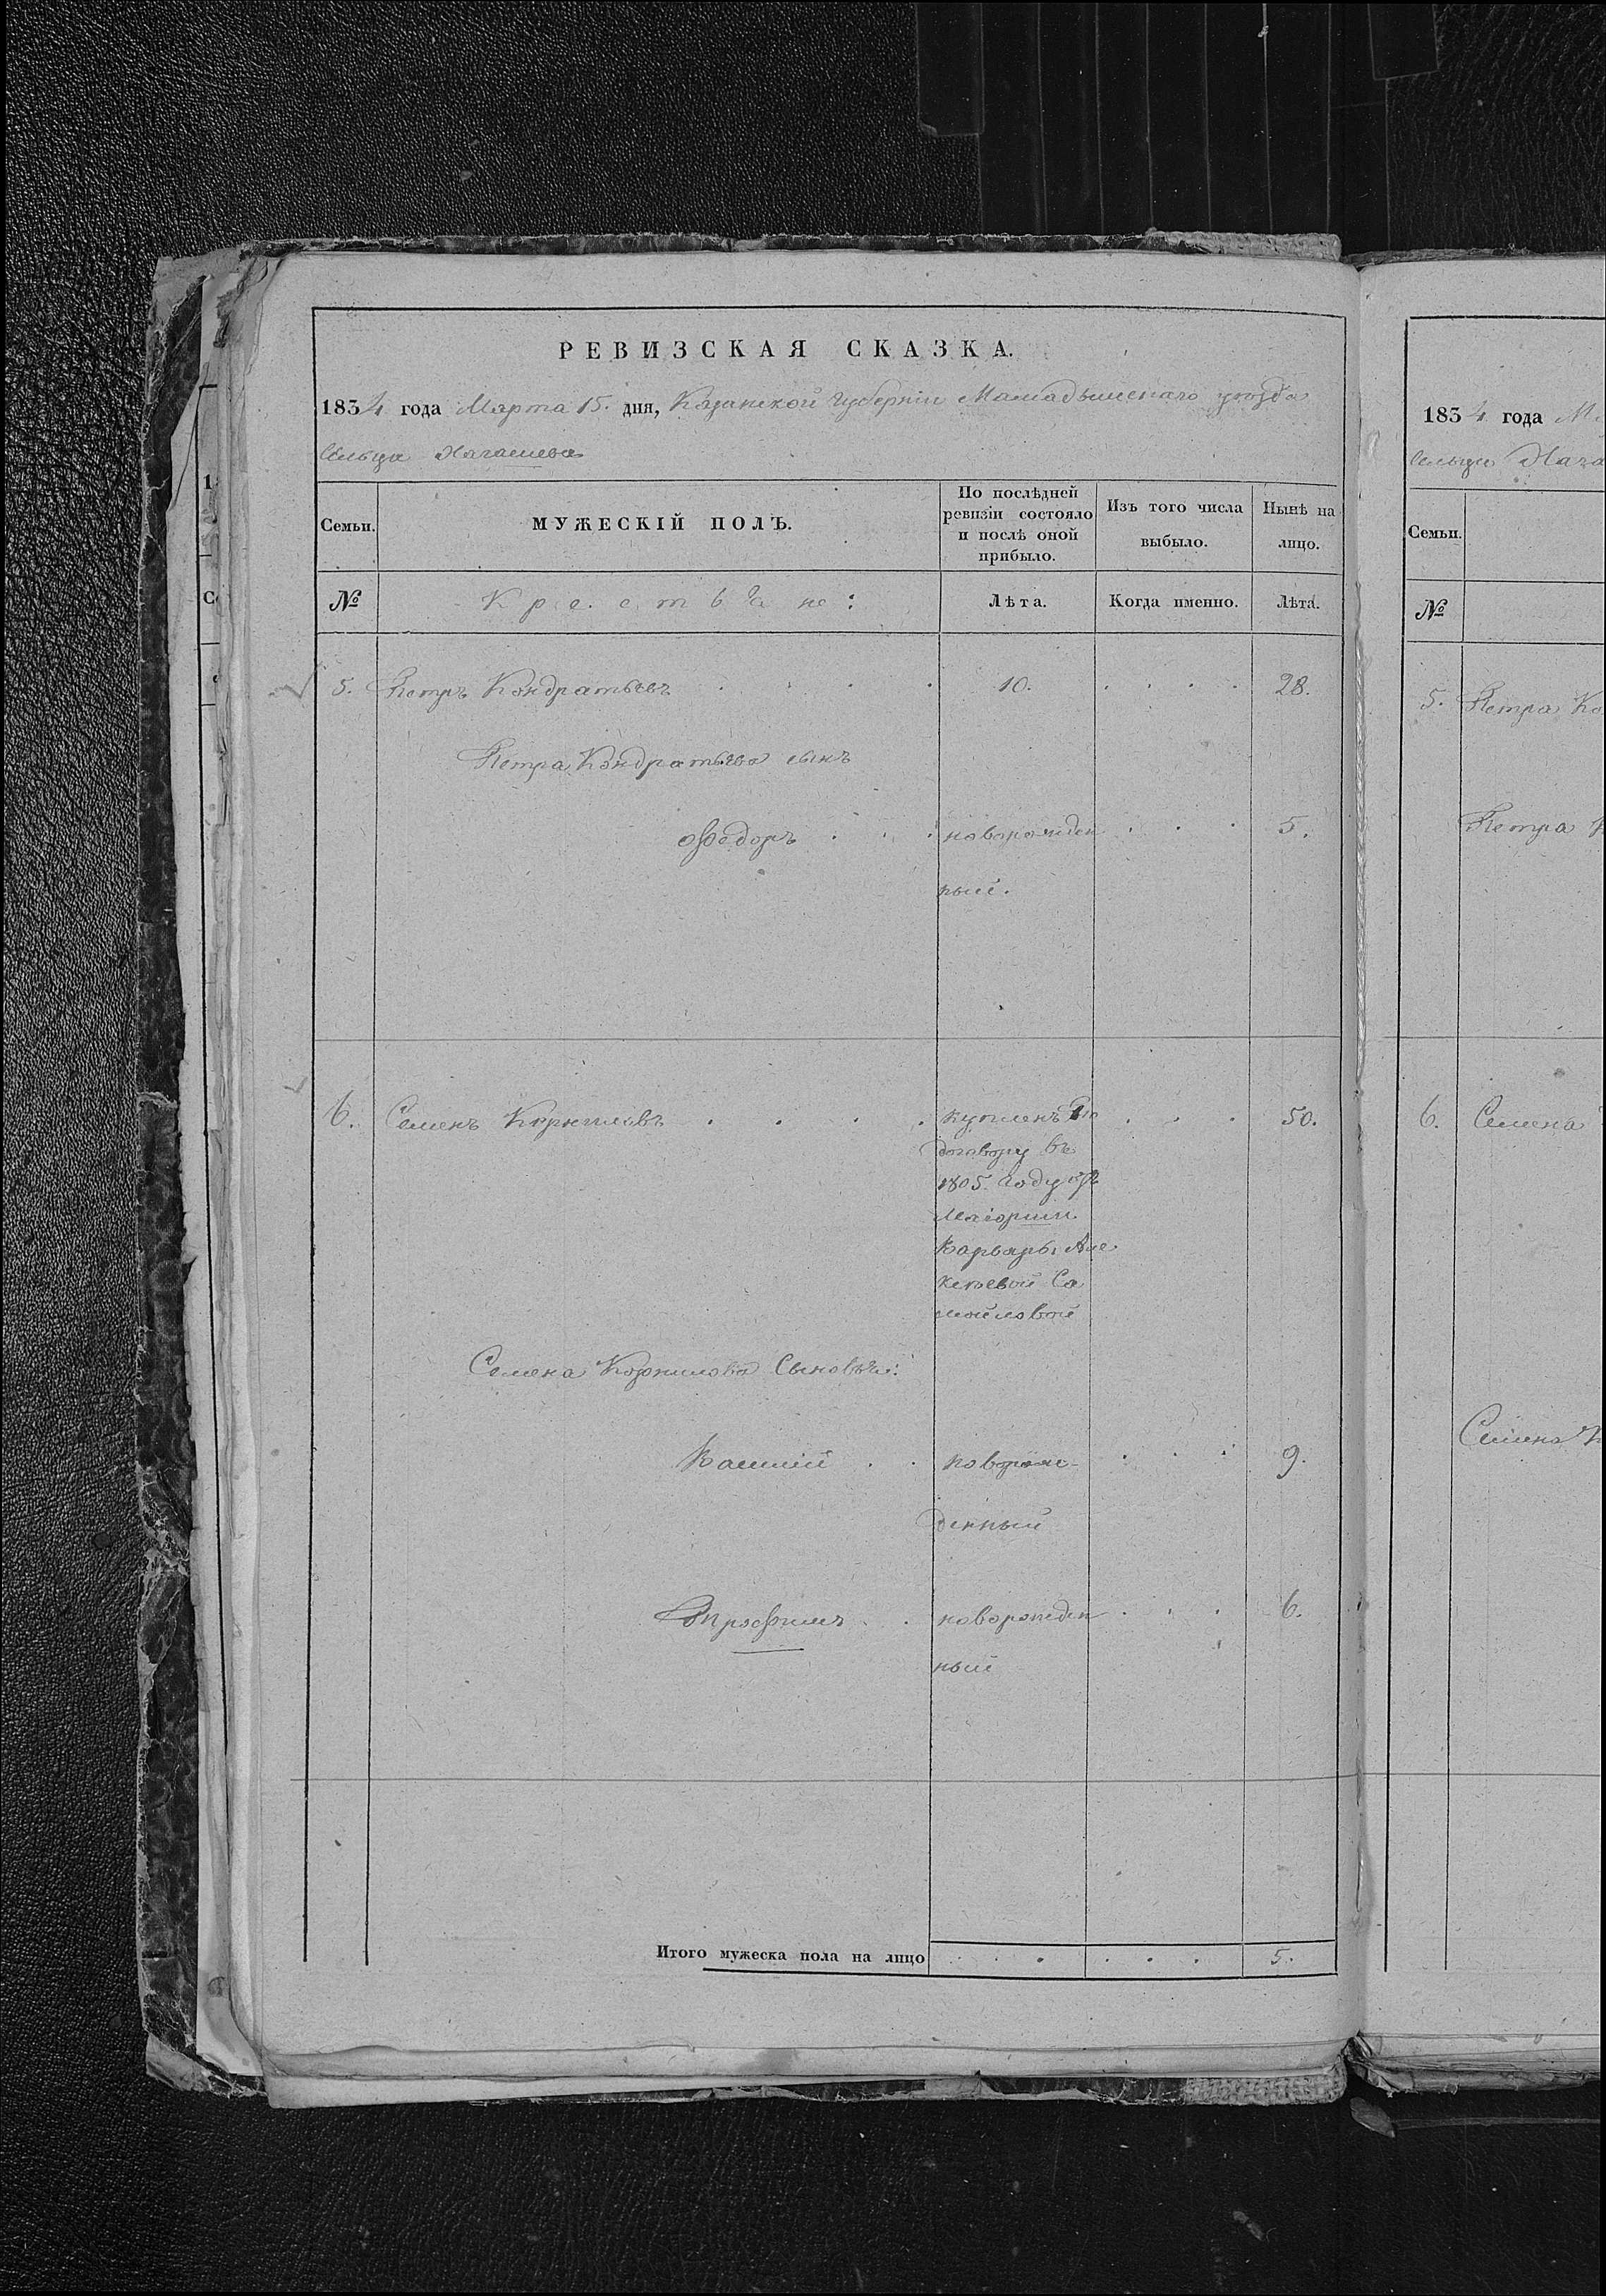 РЕВИЗСКАЯ СКАЗКА.
1834 года Марта 15. дня, Казанской Губерніи Мамадышскаго уезда
Сельца
Семьи.
МУЖЕСКІЙ ПОЛЪ.
По послѣдней ревизіи состояло и послѣ оной прибыло.
Изъ того числа выбыло.
Нынѣ на лицо.
№
Крестьяне:
Лѣта.
Когда именно.
Лѣта.
5. Петръ Кондратьевъ . . . . 10. . . . . 28.
Петра Кондратьева сынъ
Федоръ . . . новорожден . . . 5.
ный.
6. Семенъ Корниловъ . . . . купленъ по . . . 50.
договору въ
1805 году отъ
Маіорши
Варвары Але
ксеевой Са
мойловой
Семена Корнилова Сыновья:
Василій . . новорож- . . . 9.
денный
новорожден . . . 6.
ный
Итого мужеска пола на лицо . . . . . . 5.
1834 года
Сельца
Семьи.
№
5. Петра Ко
Петра
6. Семена
Семена К